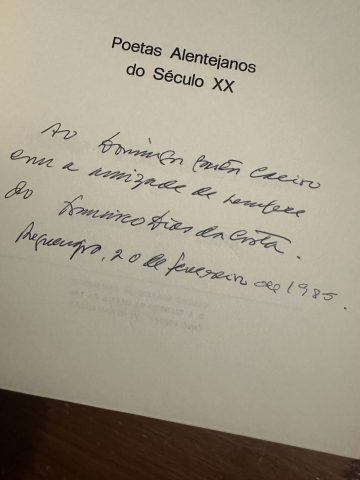 Poetas Alentejanos
do Século XX
Ao Domingos Caeiro
com a amizade de sempre
do Francisco Dias da Costa.
20 de fevereiro de 1985.